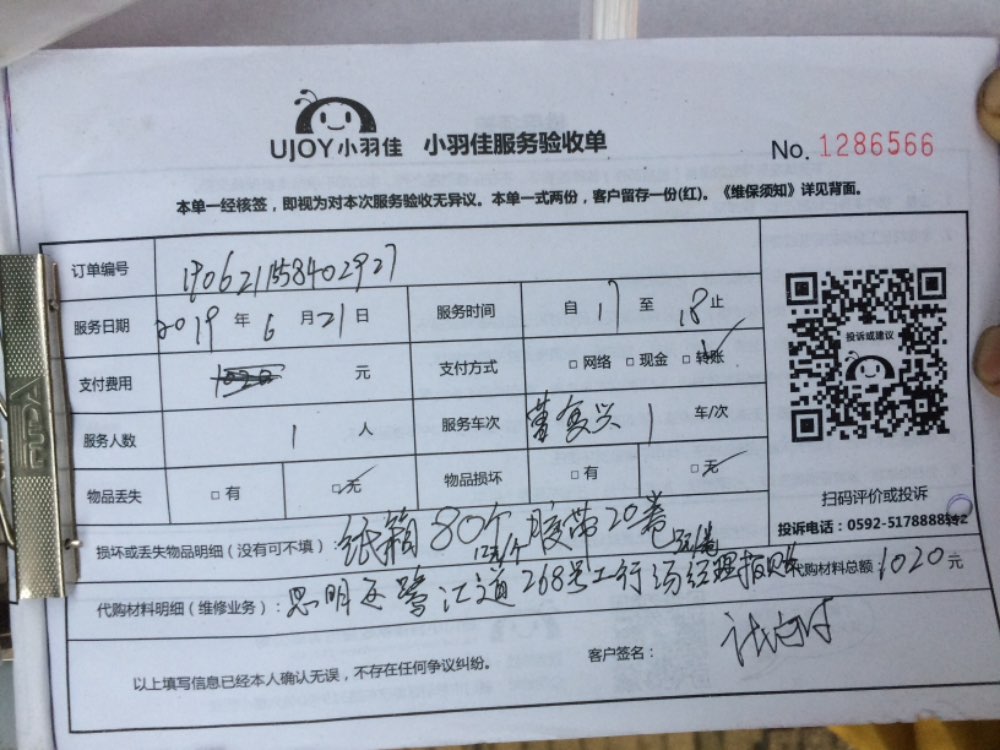 UJOY小羽佳 小羽佳服务验收单 No. 1286566
本单一经核签，即视为对本次服务验收无异议。本单一式两份，客户留存一份(红)。《维保须知》详见背面。
订单编号 190621158402927
服务日期 2019 年 6 月 21 日 服务时间 自 17 至 18 止
支付费用 元 支付方式 □网络 □现金 □转账
服务人数 1 人 服务车次 董复兴 1 车/次
物品丢失 □有 □无 物品损坏 □有 □无
投诉或建议
扫码评价或投诉
投诉电话：0592-5178888转2
损坏或丢失物品明细（没有可不填）：纸箱80个 12元/个 胶带20卷
代购材料明细（维修业务）：思明区鹭江道268号工行汤经理报账 代购材料总额：1020元
以上填写信息已经本人确认无误，不存在任何争议纠纷。 客户签名：